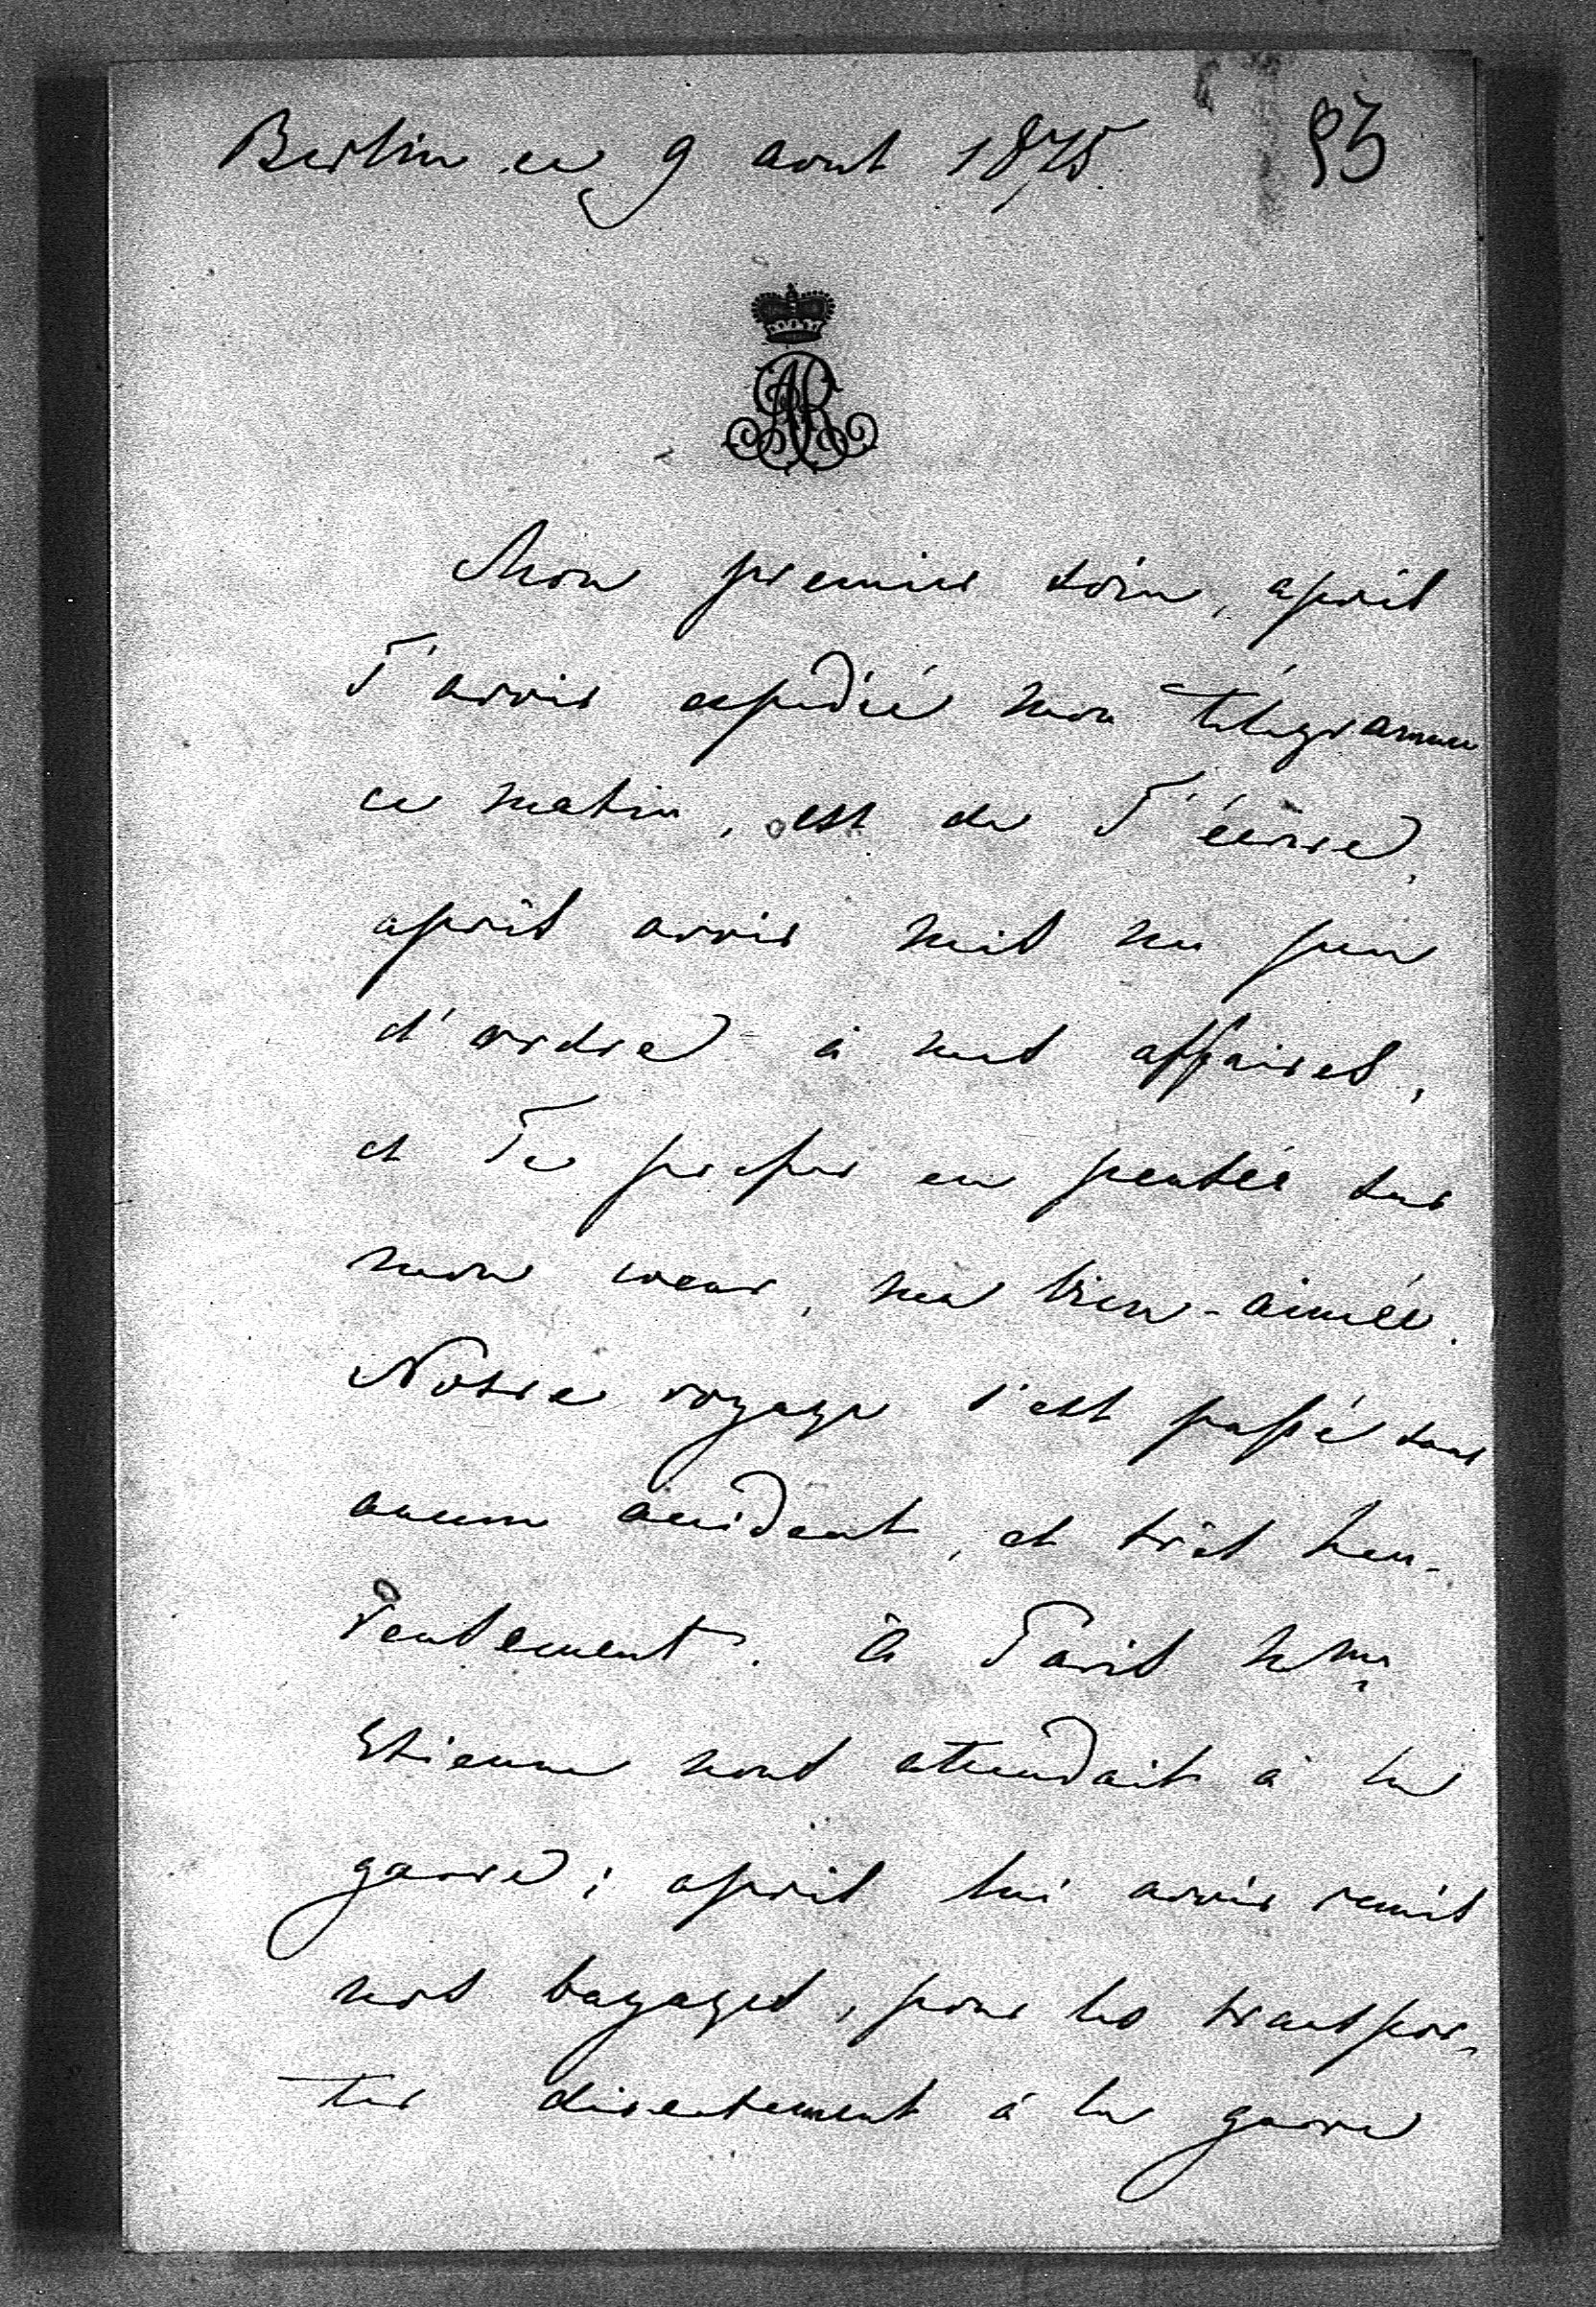 Berlin ce 9 aout 1875.
93
AR
Mon premier soin, après
T'avoir expédié mon télégramme
ce matin, est de T'écrire,
après avoir mis un peu
d'ordre à mes affaires,
et Te presser en pensée sur
mon coeur, ma bien-aimée.
Notre voyage s'est passé sans
aucun accident, et très heu-
reusement. à Paris Mme
Etienne nous attendait à la
garre; après lui avoir remis
nos bagages, pour les transpor-
ter directement à la garre